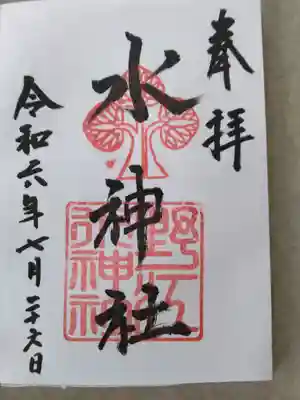 奉拝
水神社
野江水神社
令和六年七月二十六日